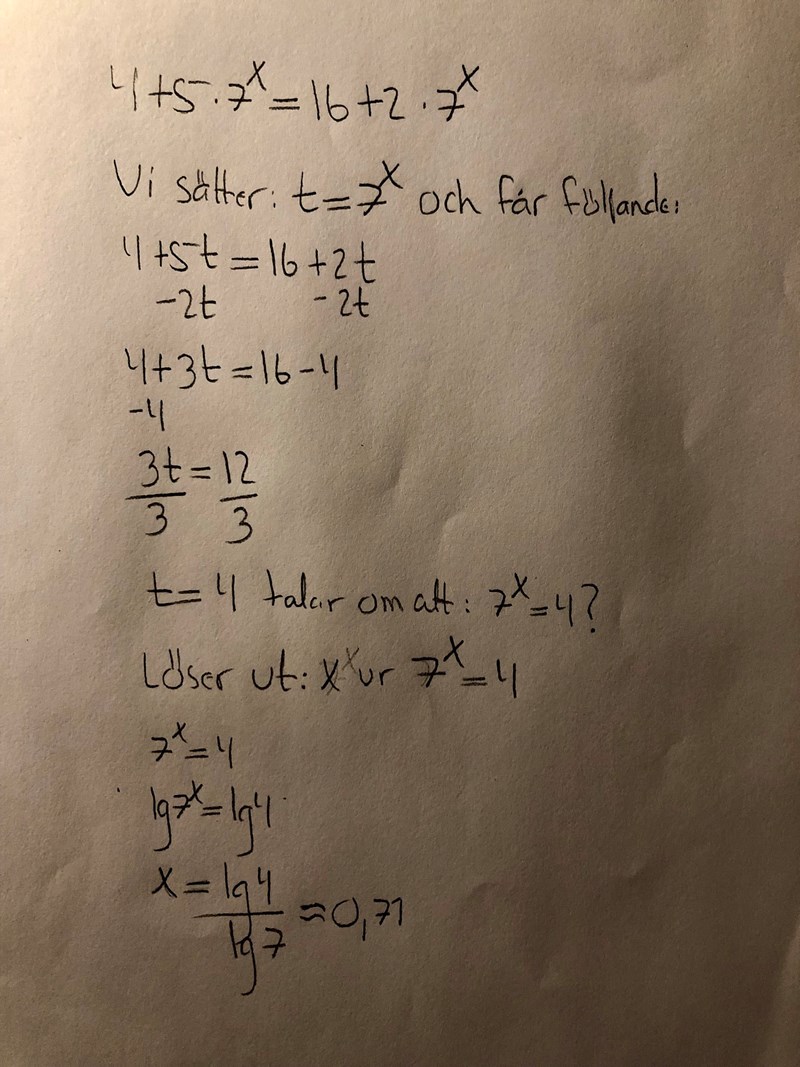 4+5·7^x=16+2·7^x
Vi sätter: t=7^x och får följande:
4+5t=16+2t
-2t -2t
4+3t=16-4
-4
3t=12
3 3
t=4 talar om att: 7^x=4?
Löser ut: x^x ur 7^x=4
7^x=4
lg7^x=lg4
x=lg4
lg7 ≈0,71